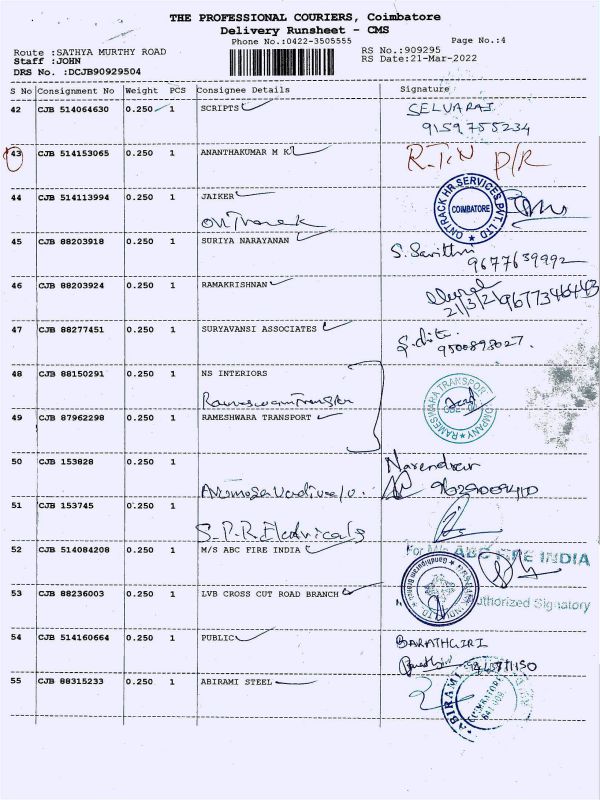 THE PROFESSIONAL COURIERS, Coimbatore
Delivery Runsheet - CMS
Phone No.:0422-3505555 Page No.:4
Route :SATHYA MURTHY ROAD RS No.:909295
Staff :JOHN RS Date:21-Mar-2022
DRS No. :DCJB90929504
S No Consignment No Weight PCS Consignee Details Signature
42 CJB 514064630 0.250 1 SCRIPTS SELVARAJ
9159755234
43 CJB 514153065 0.250 1 ANANTHAKUMAR M K R.T.N P/R
44 CJB 514113994 0.250 1 JAIKER
ONTRACK HR SERVICES PVT. LTD COIMBATORE
45 CJB 88203918 0.250 1 SURIYA NARAYANAN S. Savithri
9677639992
46 CJB 88203924 0.250 1 RAMAKRISHNAN
21/3/2
47 CJB 88277451 0.250 1 SURYAVANSI ASSOCIATES
9500898027.
48 CJB 88150291 0.250 1 NS INTERIORS
RAMESHWARA TRANSPORT COMPANY
49 CJB 87962298 0.250 1 RAMESHWARA TRANSPORT
50 CJB 153828 0.250 1
51 CJB 153745 0.250 1
S.P.R. Electricals
52 CJB 514084208 0.250 1 M/S ABC FIRE INDIA For M/s ABC FIRE INDIA
53 CJB 88236003 0.250 1 LVB CROSS CUT ROAD BRANCH Authorized Signatory
54 CJB 514160664 0.250 1 PUBLIC BARATHGIRI
55 CJB 88315233 0.250 1 ABIRAMI STEEL
ABIRAMI COIMBATORE